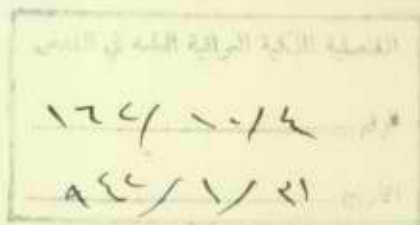 القنصلية الملكية العراقية العامة في القدس
الرقم ١٦٢/١٠/٤
التاريخ ٩٤٢/١/٢١